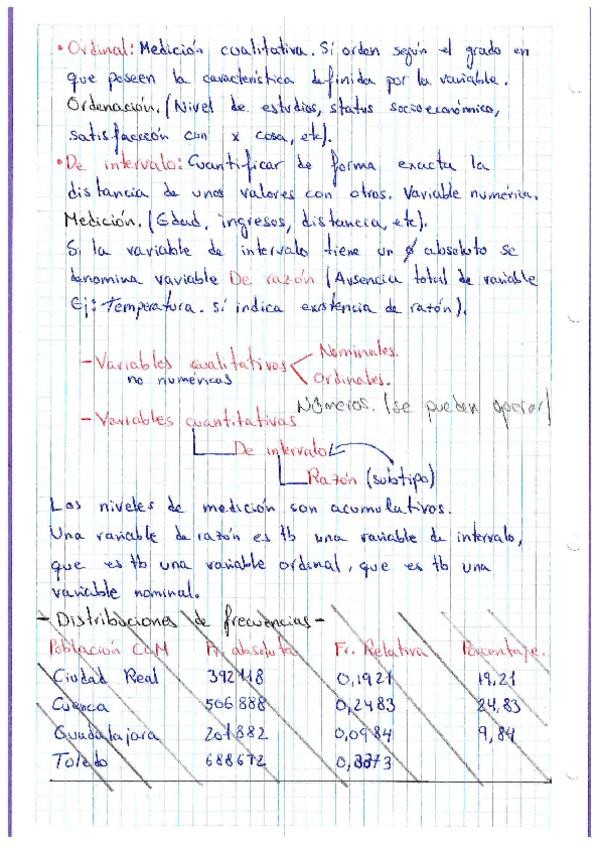 • Ordinal: Medición cualitativa. Sí orden según el grado en
que poseen la característica definida por la variable.
Ordenación. (Nivel de estudios, status socioeconómico,
satisfacción con x cosa, etc).
• De intervalo: Cuantificar de forma exacta la
distancia de unos valores con otros. Variable numérica.
Medición. (Edad, ingresos, distancia, etc).
Si la variable de intervalo tiene un ∅ absoluto se
denomina variable De razón (Ausencia total de variable
Ej: Temperatura. Sí indica existencia de razón).
- Variables cualitativas Nominales.
no numéricas Ordinales.
- Variables cuantitativas Números. (se pueden operar)
De intervalo
Razón (subtipo)
Los niveles de medición son acumulativos.
Una variable de razón es tb una variable de intervalo,
que es tb una variable ordinal, que es tb una
variable nominal.
- Distribuciones de frecuencias -
Población CLM Fr. absoluta Fr. Relativa Porcentaje.
Ciudad Real 392118 0,1921 19,21
Cuenca 506888 0,2483 24,83
Guadalajara 201882 0,0984 9,84
Toledo 688672